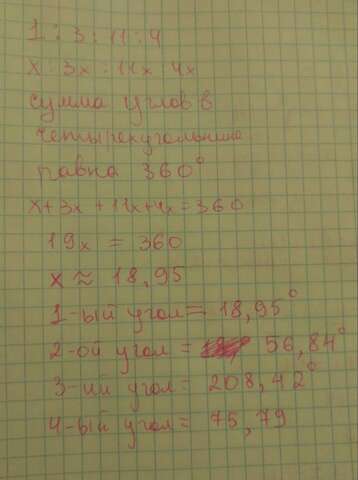 1 : 3 : 11 : 4
x 3x 11x 4x
сумма углов в
четырехугольнике
равна 360°
x+3x+11x+4x=360
19x = 360
x ≈ 18,95
1-ый угол = 18,95°
2-ой угол = 56,84°
3-ий угол = 208,42°
4-ый угол = 75,79